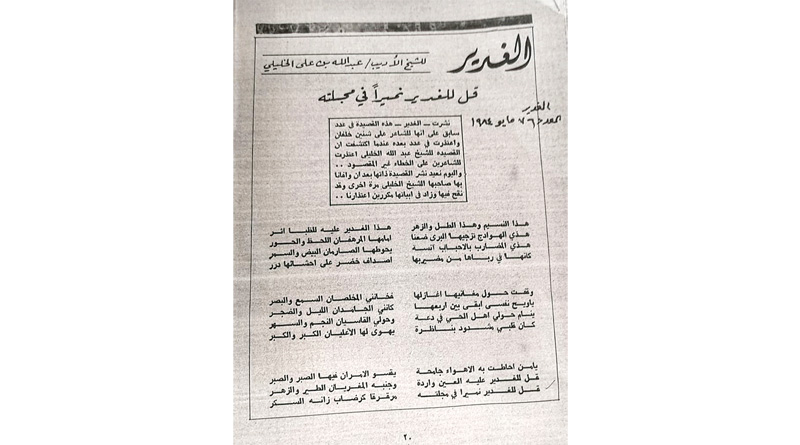 الغدير
للشيخ الأديب/ عبدالله بن علي الخليلي
قل للغدير نميراً في مجلته
الغدير
العدد ٧٦ مايو ١٩٨٤
نشرت ــ الغدير ــ هذه القصيدة في عدد
سابق على انها للشاعر على شنين خلفان
واعتذرت في عدد بعده عندما اكتشفت ان
القصيدة للشيخ عبد الله الخليلى اعتذرت
للشاعرين على الخطاء غير المقصود ..
واليوم نعيد نشر القصيدة ذاتها بعد ان وافانا
بها صاحبها الشيخ الخليلى مرة اخرى وقد
نقح فيها وزاد في ابياتها مكررين اعتذارنا ..
هذا النسيم وهذا الطل والزهر هذا الغدير عليه للظبا اثر
هذي الهوادج تزجيها البرى ضعنا امامها المرهفان اللحظ والحور
هذي المضارب بالاحباب آنسة يحوطها الصارمان البيض والسمر
كانها في رباها من مضيريها اصداف خضر على احشائها درر
وقفت حول مغانيها اغازلها فخانني المخلصان السمع والبصر
ياويح نفسى ابقى بين اربعها كأنني الجامدان الليل والضجر
ينام حولي اهل الحي في دعة وحولي القاسيان النجم والسهر
كان ظبي مشدود بناظرة يهوى لها الأغليان الكبر والكبر
يامن احاطت به الاهواء جامحة يقسو الامران فيها الصبر والصبر
قل للغدير عليه العين واردة وجنبه المغريان الطير والزهر
قل للغدير نميرا في مجلته مرقرقا كرضاب زانه السكر
٢٠